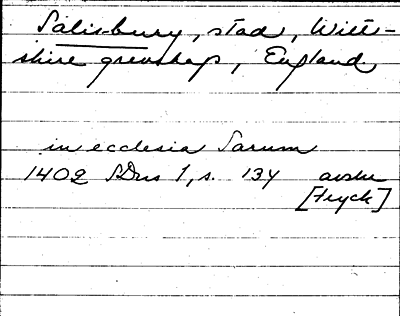 Salisbury, stad, Wilt-
shire grevskap, England
in ecclesia Sarum
1402 SDns 1, s. 134 avskr
[tryck]